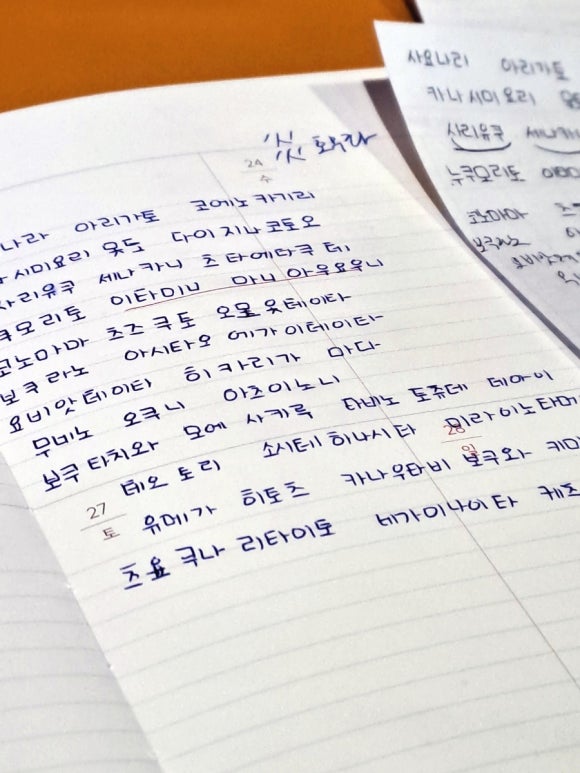 24
수
나라 아리가토 코에노 카기리
시미요리 옷도 다이지나 코토오
사리유쿠 세나카니 츠타에타쿠 테
쿠모리토 이타미니 마니 아우요우니
코노마마 츠즈쿠토 오모 옷테이타
보쿠라노 아시타오 에가이테이타
요비앗테이타 히카리가 마다
무네노 오쿠니 아츠이노니
보쿠타치와 모에 사카루 타비노 토쥬데 데아이
테오 토리 소시테 하나시타 미라이노타메
28
일
27
토
유메가 히토즈 카나우타비 보쿠와 키미
츠요 쿠나 리타이토 네가이나이타 케츠
사요나라 아리가토
카나시미요리
사리유쿠 세나카
누쿠모리토
코노마마
보쿠라노